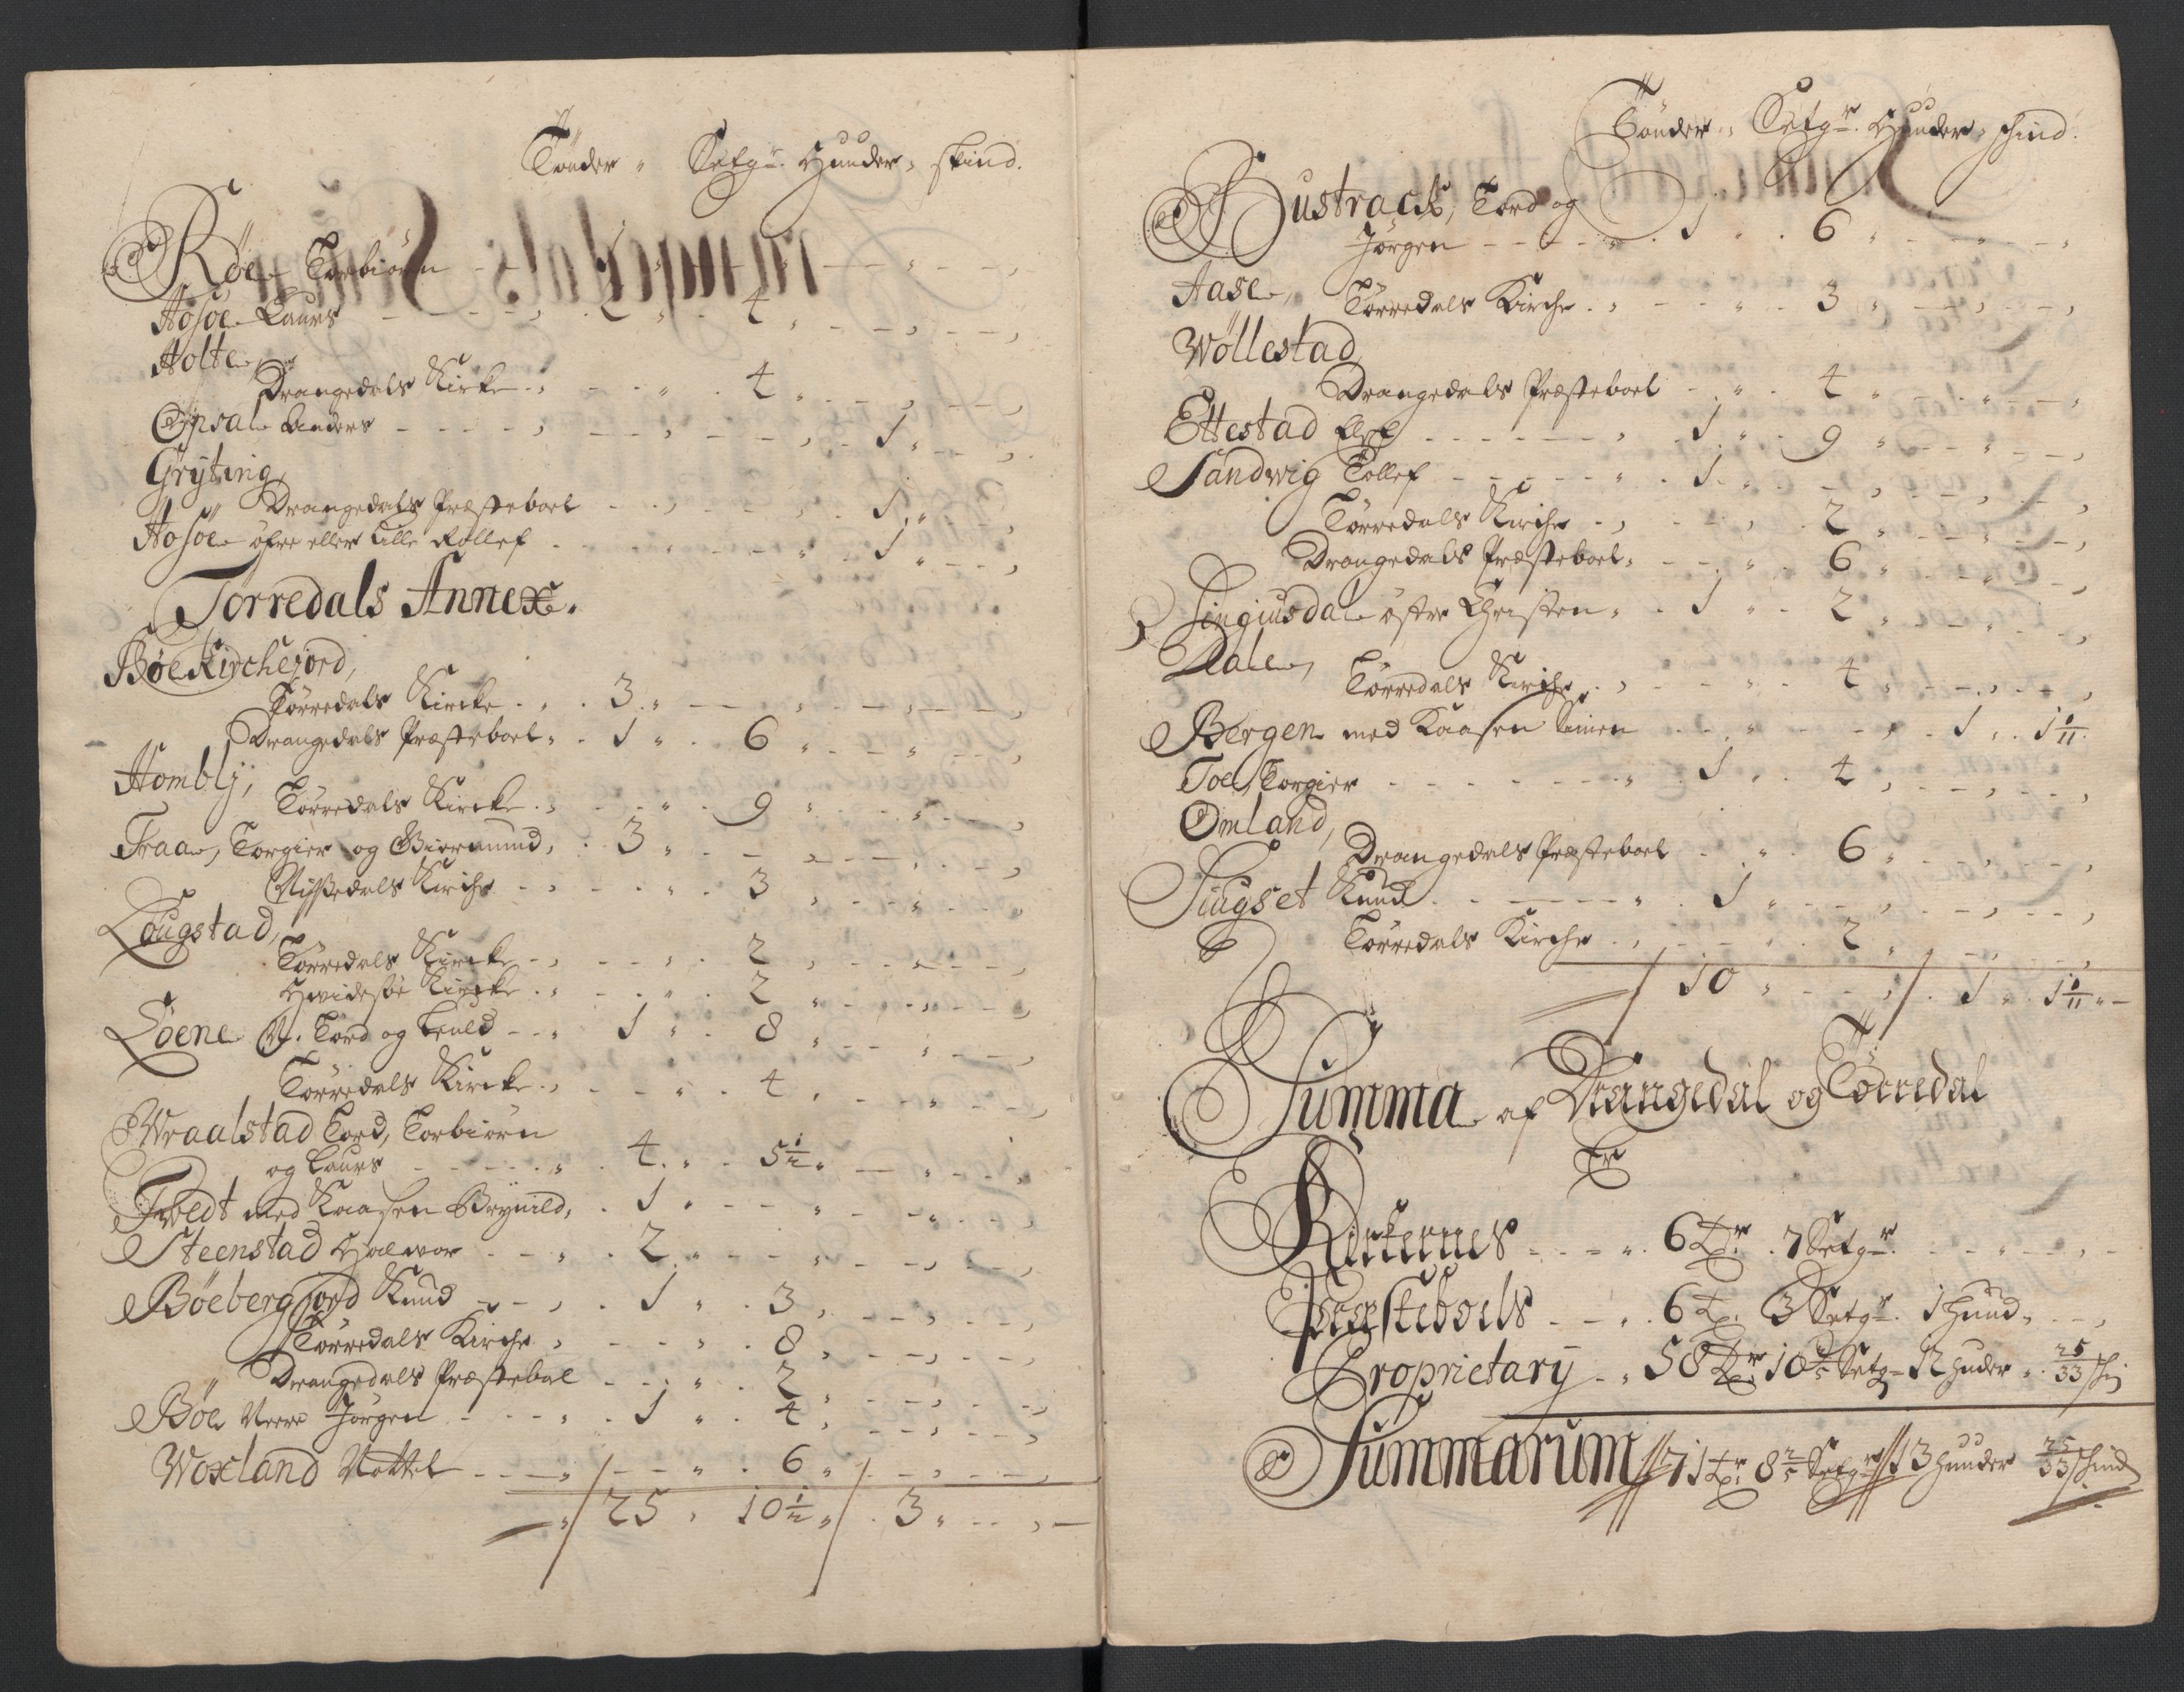 Tønder „ Setgr. Huuder „ skind.
Røe Torbiørn - - „ 1 „ - - „ - - „ - -
Aosøe Laurs - - - „ 2 „ 4 „ - - „ - -
Holte,
Drangedals Kirke . „ - - „ 4 „ - - „ - -
Opsal Anders - - - „ - - „ - - „ 1 „ - -
Grÿting,
Drangedals Præsteboel - „ - - „ 1 „ - -
Aosøe øfre eller Lille Rollef - - „ - - „ 1 „ - -
Tørredals Annex.
Bøe Kirchejord,
Tørredals Kircke . „ 3 „ - - „ - - „ - -
Drangedals Præsteboel „ 1 „ 6 „ - - „ - -
Hombly,
Tørredals Kircke . „ - - „ 9 „ - - „ - -
Fraa, Torgier og Giermund, 3 „ - - „ - - „ - -
Nissedals Kirche - „ - - „ 3 „ - - „ - -
Lougstad,
Tørredals Kircke - „ - - „ 2 „ - - „ - -
Hvidesøe Kircke . „ - - „ 2 „ - - „ - -
Løene N. Tord og Leuld - - „ 1 „ 8 „ - - „ - -
Tørredals Kircke . „ - - „ 4 „ - - „ - -
Wraalstad Tord, Torbiørn
og Laurs - - - „ 4 „ 5½ „ - - „ - -
Tvedt med Kaasen Brynild, 1 „ - - „ - - „ - -
Steenstad Halvor - - „ 2 „ - - „ - - „ - -
Bøeberg Jord Knud - - „ 1 „ 3 „ - - „ - -
Tørredals Kirche „ - - „ 8 „ - - „ - -
Drangedals Præstebol - - „ 2 „ - - „ - -
Bøe Neere Jørgen - - „ 1 „ 4 „ - - „ - -
Woxland Nottel - - „ - - „ 6 „ - - „ - -
„ 25 „ 10½ „ 3 „ - - „ -
Tønder „ Setgr. Huuder „ skind.
Bustrack, Tord og
Jørgen - - - „ 1 „ 6 „ - - „ - -
Aase, Tørredals Kirche . „ - - „ 3 „ - - „ - -
Wøllestad,
Drangedals Præsteboel - „ 4 „ - - „ - -
Ettestad - - - - „ 1 „ 9 „ - - „ - -
Sandwig Tollef - - - „ 1 „ - - „ - - „ - -
Tørredals Kirche - „ - - „ 2 „ - - „ - -
Drangedals Præsteboel „ - - „ 6 „ - - „ - -
Singiusdal østre Christen „ 1 „ 2 „ - - „ - -
Dale, Tørredals Kirche . „ - - „ 4 „ - - „ - -
Bergen med Kaasen - - „ - - „ 1 „ 1 1/11
Toe, Torgier - - - - „ 1 „ 4 „ - - „ - -
Omland,
Drangedals Præsteboel - „ 6 „ - - „ - -
Siugset Knud - - - „ 1 „ - - „ - - „ - -
Tørredals Kirche . „ - - „ 2 „ - - „ - -
10 „ - - „ 1 „ 1 1/11 „ -
Summa af Drangedal og Tørredal
Er
Kirkernes - - - „ 6 Tr. 7 Setgr. - - „ - -
Præsteboels - - „ 6 T. 3 Setgr. 1 huud „ - -
Proprietary - „ 58 Tr. 10⅖ Setgr 12 huder „ 25/33 ski
Summarum 71 Tr. 8⅖ Setgr. 13 Huuder 25/33 skind